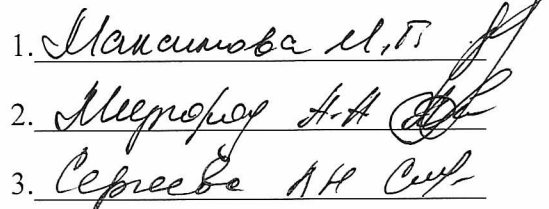 1. Максимова М.П
2. Миргород Н.Н
3. Сергеева АН